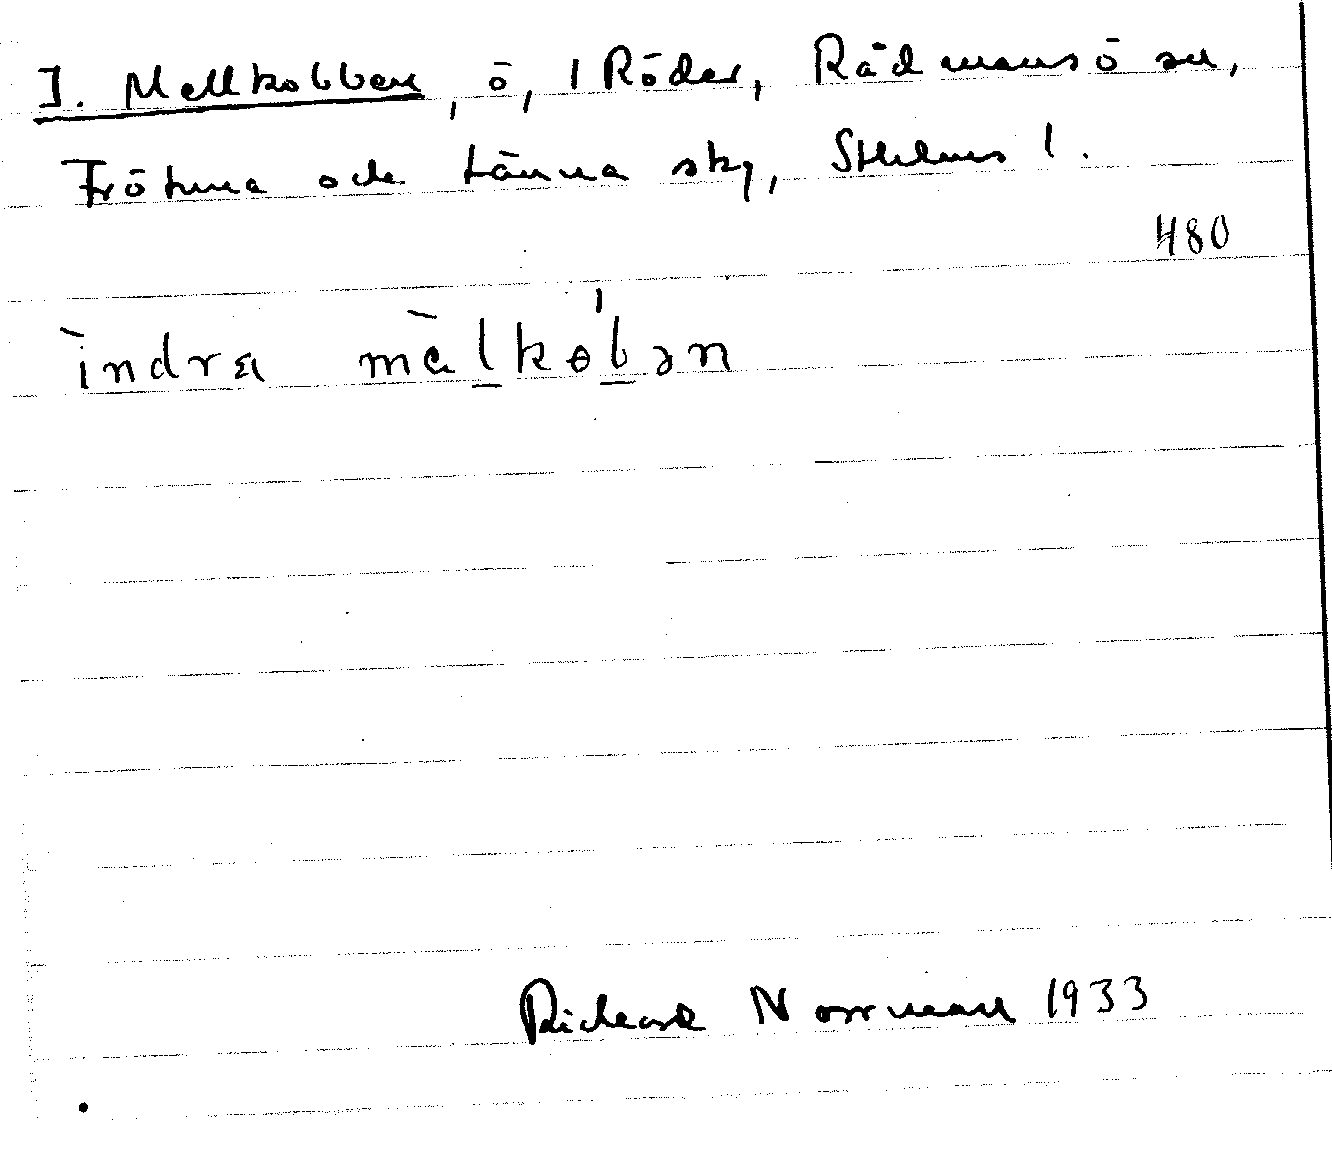 I. Mellkobben, ö, i Röder, Rådmansö sn,
Frötuna och Länna sky, Sthlms l.
480
ìndra mèlkòbən
Richard Norrman 1933